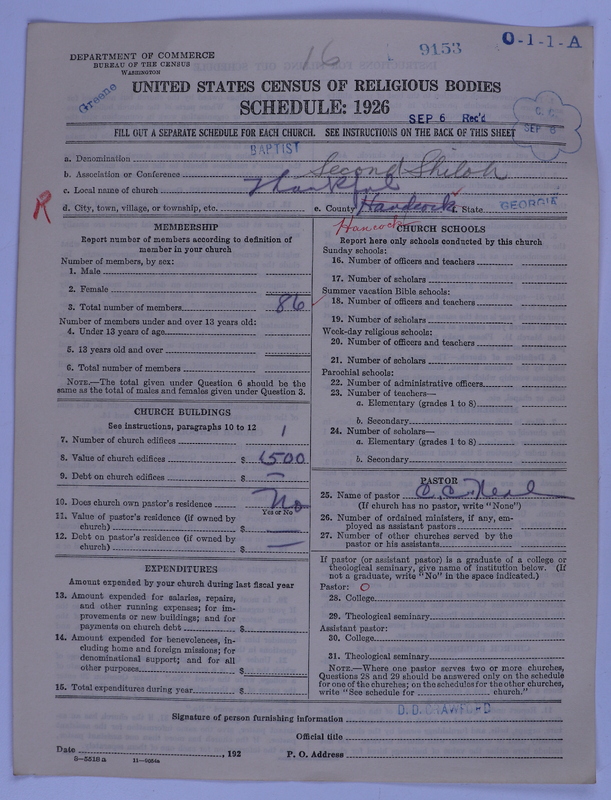 16 9153 O-1-1-A
DEPARTMENT OF COMMERCE
BUREAU OF THE CENSUS
WASHINGTON
Greene
UNITED STATES CENSUS OF RELIGIOUS BODIES
SCHEDULE: 1926
SEP 6 Rec'd
SEP 8
FILL OUT A SEPARATE SCHEDULE FOR EACH CHURCH. SEE INSTRUCTIONS ON THE BACK OF THIS SHEET
a. Denomination BAPTIST
b. Association or Conference Second Shiloh
c. Local name of church Thankful
R
d. City, town, village, or township, etc. e. County Handcock f. State GEORGIA
Hancock
MEMBERSHIP
Report number of members according to definition of
member in your church
Number of members, by sex:
1. Male
2. Female
3. Total number of members 86
Number of members under and over 13 years old:
4. Under 13 years of age
5. 13 years old and over
6. Total number of members
NOTE.—The total given under Question 6 should be the
same as the total of males and females given under Question 3.
CHURCH BUILDINGS
See instructions, paragraphs 10 to 12
7. Number of church edifices 1
8. Value of church edifices $ 1500
9. Debt on church edifices $ —
10. Does church own pastor's residence No
Yes or No
11. Value of pastor's residence (if owned by
church) $ —
12. Debt on pastor's residence (if owned by
church) $ —
EXPENDITURES
Amount expended by your church during last fiscal year
13. Amount expended for salaries, repairs,
and other running expenses; for im-
provements or new buildings; and for
payments on church debt $
14. Amount expended for benevolences, in-
cluding home and foreign missions; for
denominational support; and for all
other purposes $
15. Total expenditures during year $
CHURCH SCHOOLS
Report here only schools conducted by this church
Sunday schools:
16. Number of officers and teachers
17. Number of scholars
Summer vacation Bible schools:
18. Number of officers and teachers
19. Number of scholars
Week-day religious schools:
20. Number of officers and teachers
21. Number of scholars
Parochial schools:
22. Number of administrative officers
23. Number of teachers—
a. Elementary (grades 1 to 8)
b. Secondary
24. Number of scholars—
a. Elementary (grades 1 to 8)
b. Secondary
PASTOR
25. Name of pastor C. C. Neal
(If church has no pastor, write "None")
26. Number of ordained ministers, if any, em-
ployed as assistant pastors
27. Number of other churches served by the
pastor or his assistants
If pastor (or assistant pastor) is a graduate of a college or
theological seminary, give name of institution below. (If
not a graduate, write "No" in the space indicated.)
Pastor: O
28. College
29. Theological seminary
Assistant pastor:
30. College
31. Theological seminary
NOTE.—Where one pastor serves two or more churches,
Questions 28 and 29 should be answered only on the schedule
for one of the churches; on the schedules for the other churches,
write "See schedule for church."
Signature of person furnishing information D. D. CRAWFORD
Official title
Date , 192 P. O. Address
8-5518 a 11-9084a